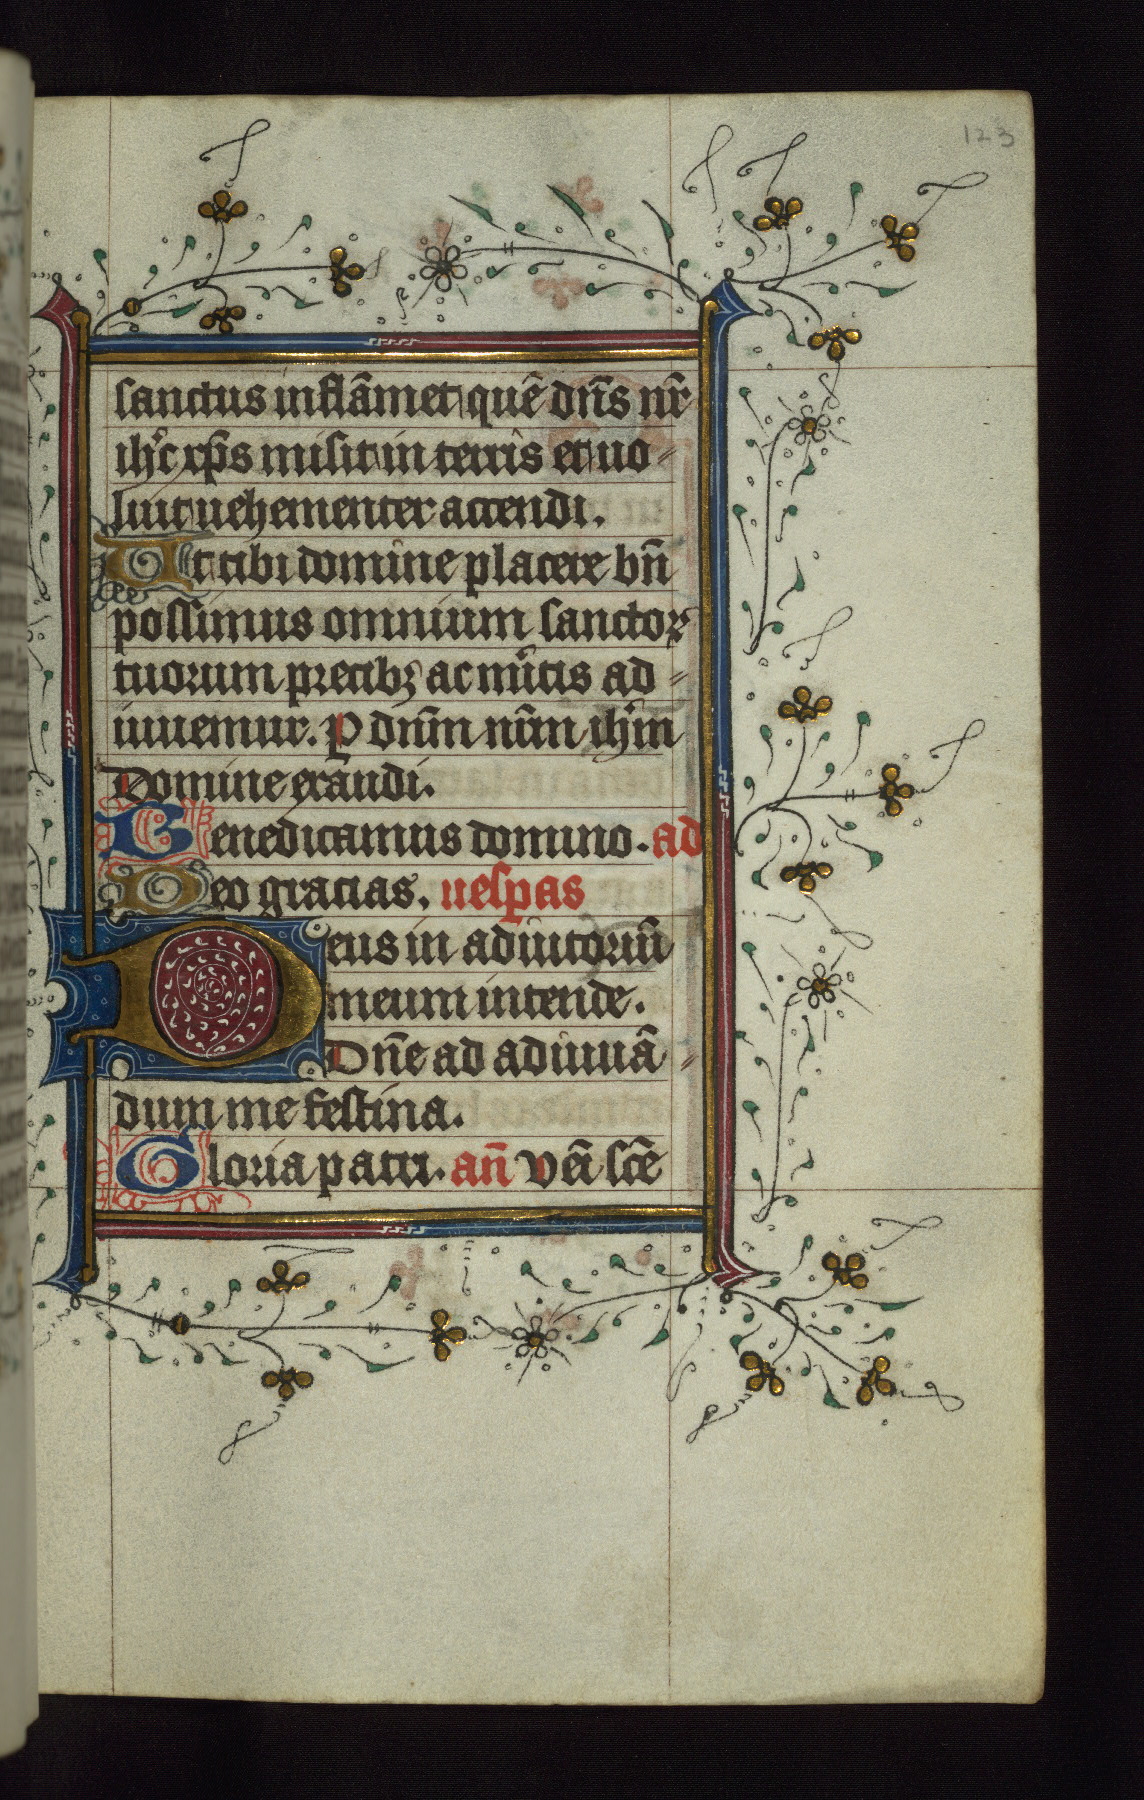 123
sanctus inflãmet quẽ dñs nr̃
ihc xp̃s misit in terris et uo
luit uehementer accendi.
Ut tibi domine placere bñ
possimus omnium sanctoꝝ
tuorum precibꝫ ac mitis ad
iuuemur. P dnm̃ nrm̃ ihm
Domine exaudi.
Benedicamus domino. ad
Deo gracias. uesꝑas
Deus in adiutoriũ
meum intende.
Dñe ad adiuuã
dum me festina.
Gloria patri. añ Vẽi scẽ